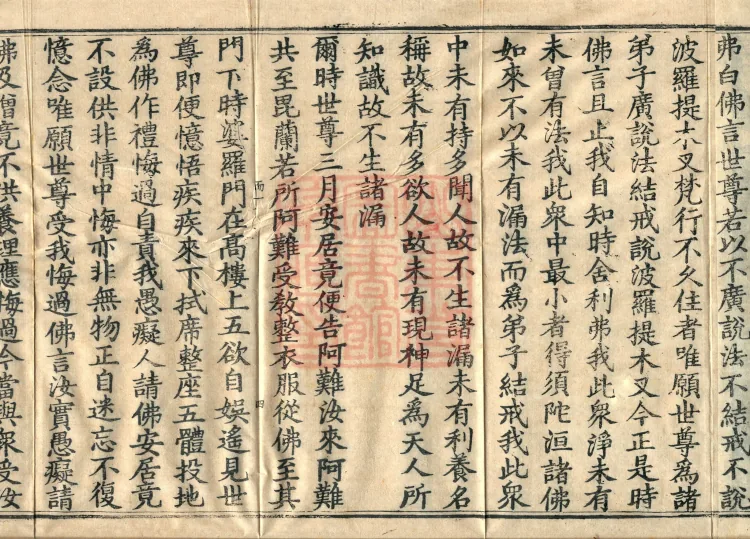 弗白佛言世尊若以不廣說法不結戒不說
波羅提木叉梵行不久住者唯願世尊爲諸
弟子廣說法結戒說波羅提木叉今正是時
佛言且止我自知時舍利弗我此衆淨未有
未曾有法我此衆中最小者得須陀洹諸佛
如來不以未有漏法而爲弟子結戒我此衆
中未有持多聞人故不生諸漏未有利養名
稱故未有多欲人故未有現神足爲天人所
知識故不生諸漏
爾時世尊三月安居竟便告阿難汝來阿難
共至毘蘭若所阿難受敎整衣服從佛至其
門下時婆羅門在髙樓上五欲自娛遙見世
尊即便憶悟疾疾來下拭席整座五體投地
爲佛作禮悔過自責我愚癡人請佛安居竟
不設供非情中悔亦非無物正自迷忘不復
憶念唯願世尊受我悔過佛言汝實愚癡請
佛及僧竟不供養理應悔過今當與衆受汝